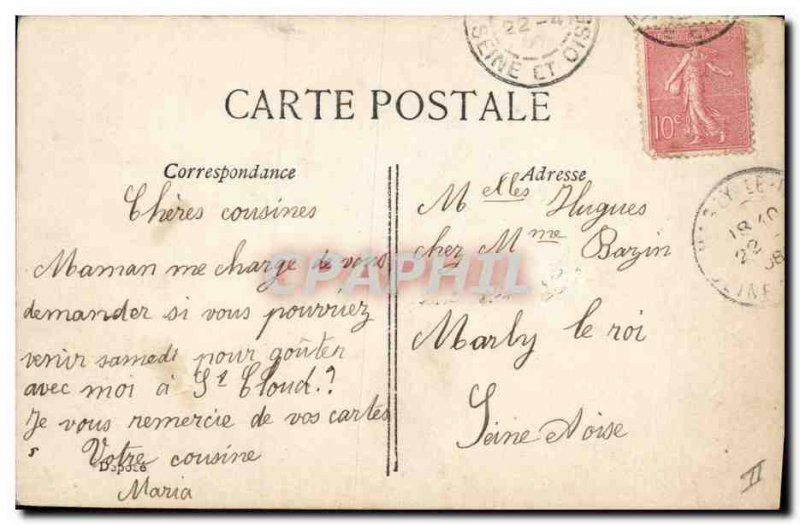 22-4
SEINE ET OISE
10c
CARTE POSTALE
Correspondance
Chères cousines
Maman me charge de vous
demander si vous pourriez
venir samedi pour goûter
avec moi à St Cloud.?
Je vous remercie de vos cartes
Votre cousine
Déposé
Maria
Adresse
Melles Hugues
chez Mme Bazin
Marly le roi
Seine Aoise
MARLY-LE-
18 40
22
08
SEINE
CPAPHIL
II